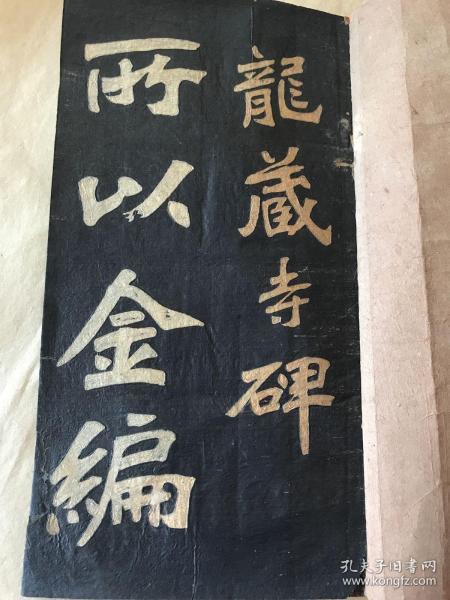 龍藏寺碑
所以金編
孔夫子旧书网
www.kongfz.com